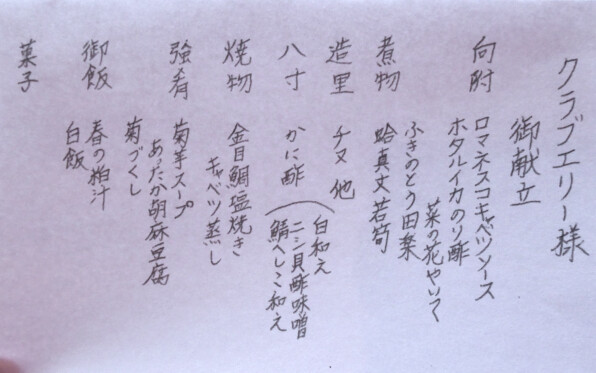 クラブエリー様
御献立
向附 ロマネスコキャベツソース
ホタルイカのり酢
菜の花やいて
煮物 蛤真丈若筍
ふきのとう田楽
造里 チヌ 他
八寸 かに酢
白和え
ニシ貝酢味噌
鯖へしこ和え
焼物 金目鯛塩焼き
キャベツ蒸し
強肴 菊芋スープ
あったか胡麻豆腐
菊づくし
御飯 春の粕汁
白飯
菓子